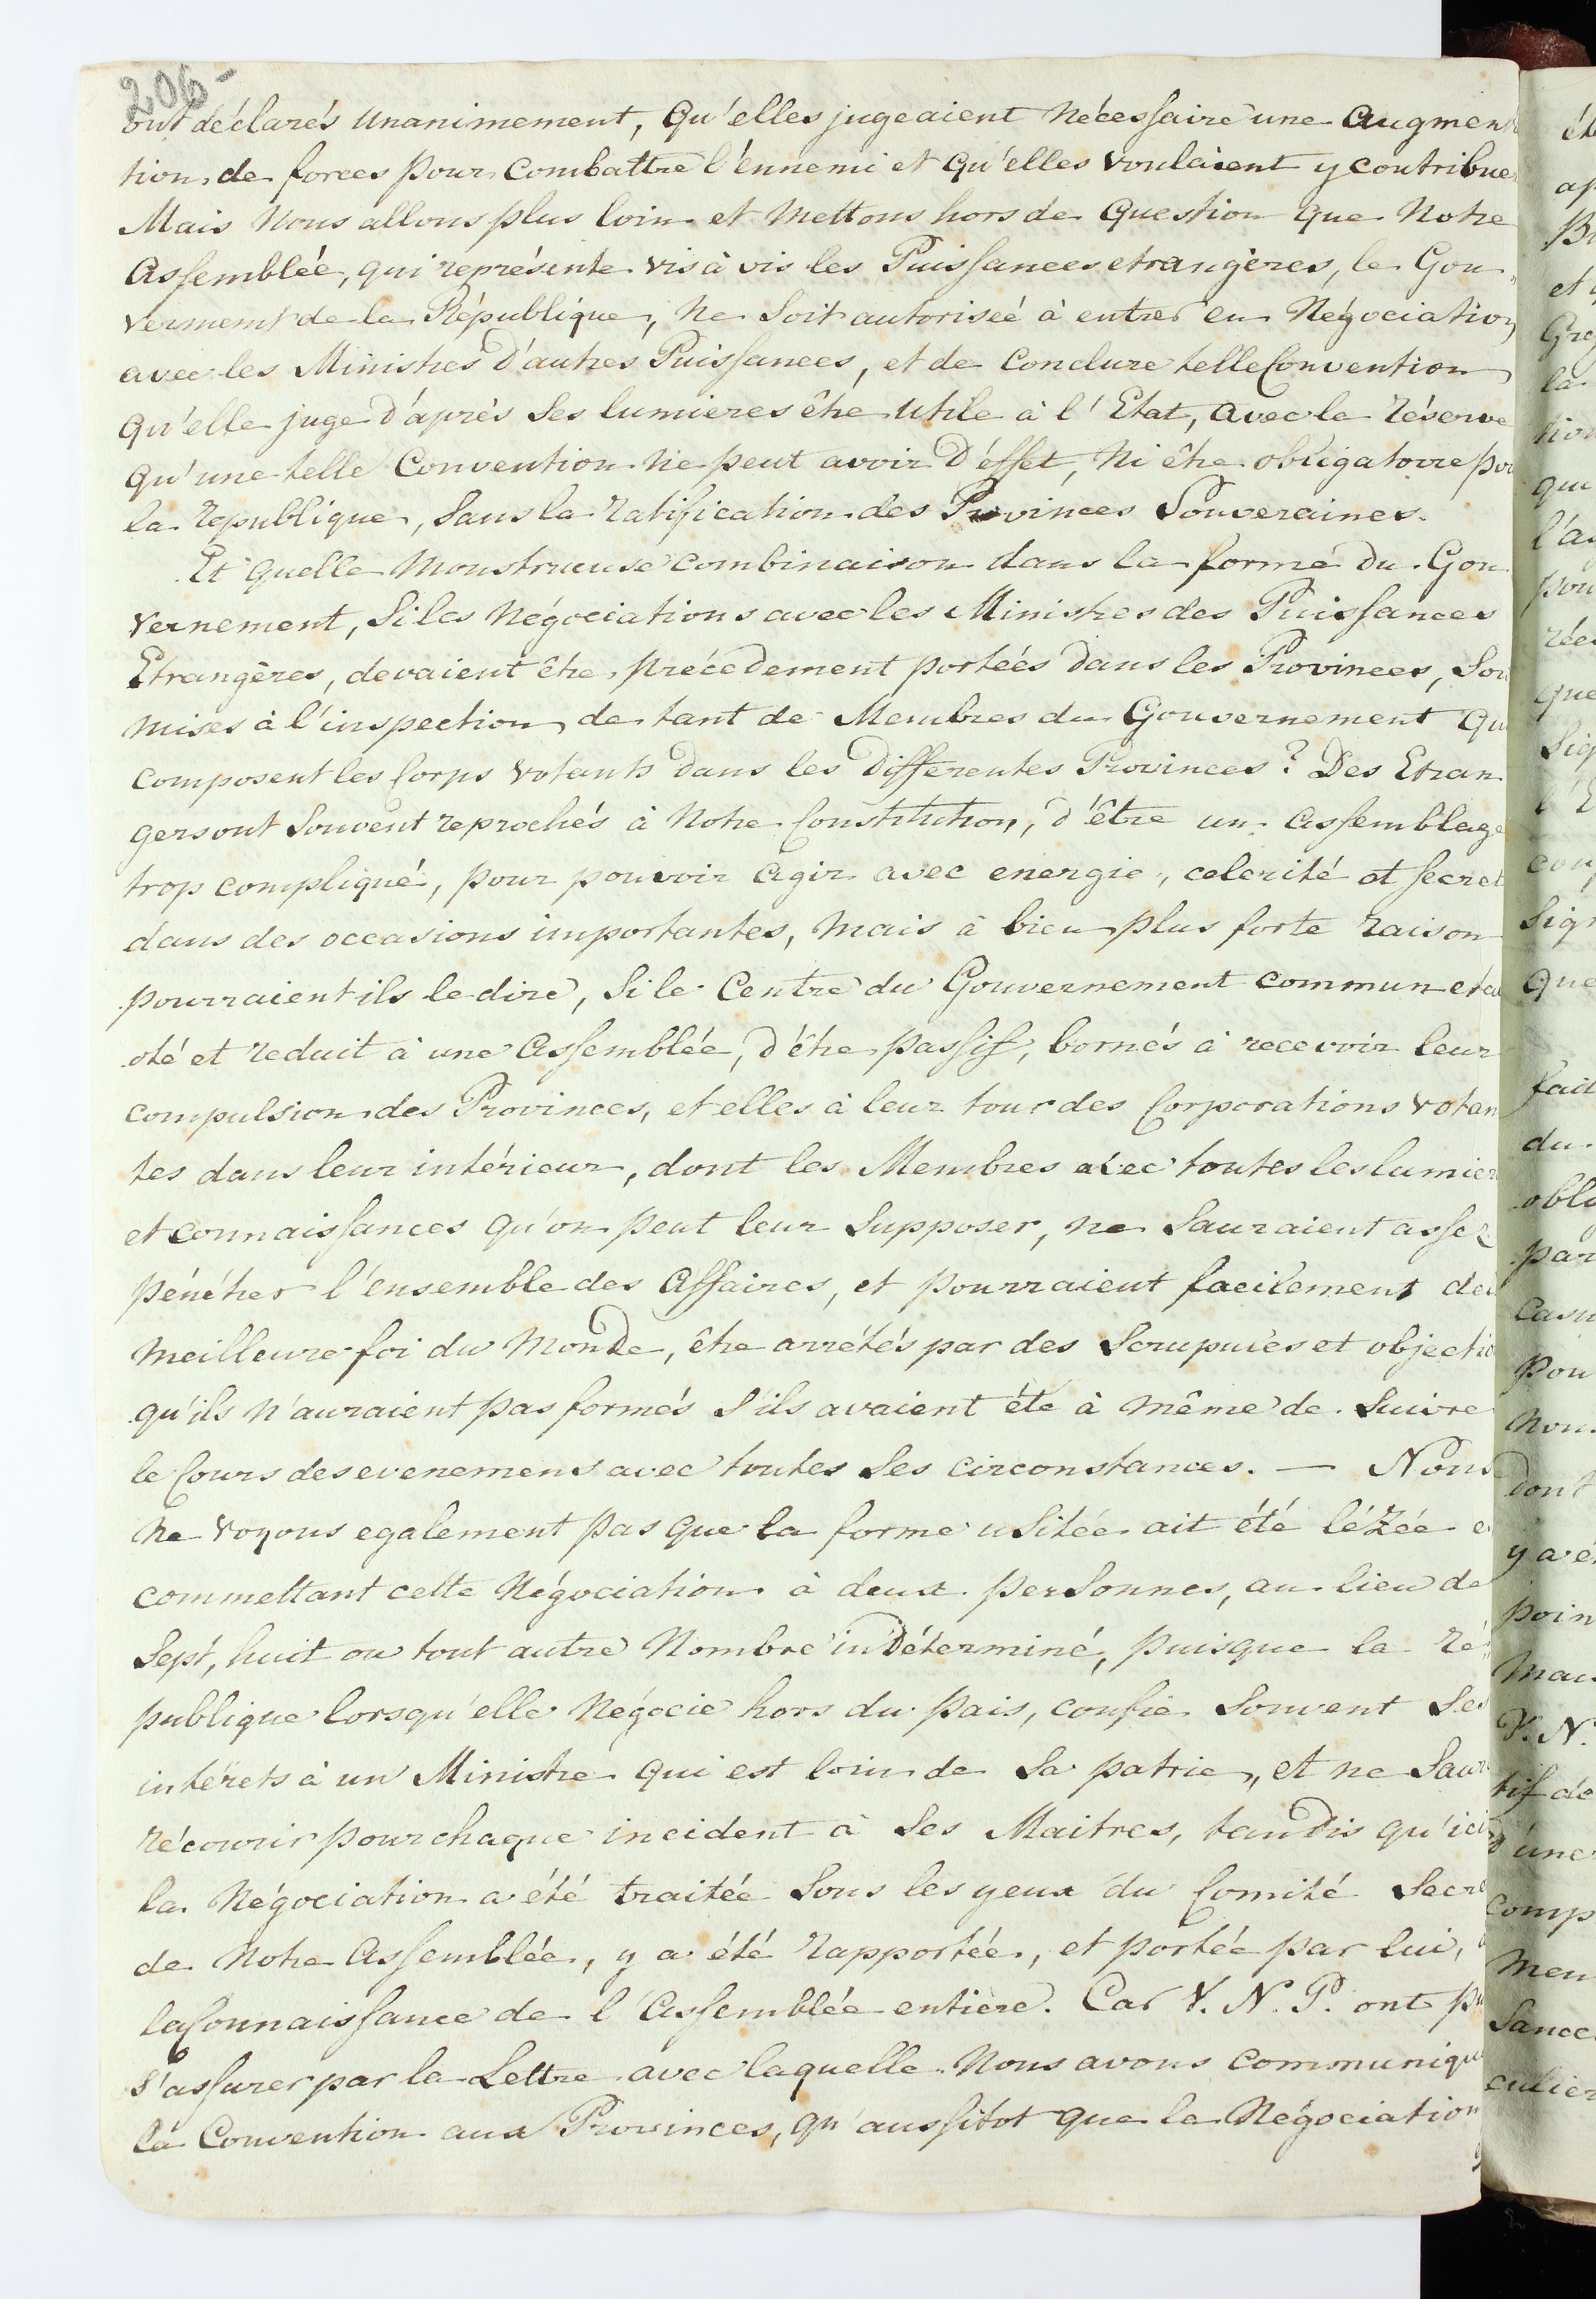 206-
ont déclarés unanimement, Qu'elles jugeaient Nécessaire une augmen
tion, de forces pour combattre l'ennemi et Qu'elles voulaient y contribue
Mais Nous allons plus loin et Mettons hors de Question que Notre
Assemblée, qui représente vis à vis les Puissances etrangères, le Gou
vernement de la République, Ne soit autoriseé à entrer en Négociation
avec les Ministres d'autres Puissances, et de Conclure telle Convention
Qu'elle juge d'après Ses lumieres être Utile à l'Etat, avec la réserve
qu'une telle Convention Ne peut avoir d'éffet, Ni être obligatoire po
la republique, Sans la ratification des Provinces Souveraines.
Et Quelle Monstrueuse combinaison dans la forme du Gou
vernement, Si les Négociations avec les Ministres des Puissances
Etrangères, devaient être précédement portées dans les Provinces, Sou
mises à l'inspection, de tant de Membres du Gouvernement Qu
composent les Corps votants dans les Differentes Provinces? Des Etran
gers ont Souvent reprochés à Notre Constitution, d'être un Assemblage
trop compliqué, pour pouvoir agir avec energie, celerité et secret
dans des occasions importantes, Mais à bien plus forte raison
pourraient ils le dire, Si le Centre du Gouvernement commun eta
oté et reduit à une Assemblée, d'être passif, bornés à recevoir leur
compulsion des Provinces, et elles à leur tour des Corporations votan
tes dans leur intérieur, dont les Membres avec toutes les lumier
et connaissances Qu'on peut leur Supposer, Ne Sauraient assez
pénétrer l'ensemble des Affaires, et pourraient facilement de
Meilleure foi du Monde, être arrétés par des Scrupules et objectio
qu'ils N'auraient pas formés S'ils avaient été à Même de Suivre
le Cours des evenemens avec toutes Ses circonstances. — Nous
Ne voyons egalement pas Que la forme usitée ait été lézée e
commettant cette Négociation à deux personnes, au lieu de
Sept, huit ou tout autre Nombre indéterminé, puisque la ré
publique lorsqu'elle Négocie hors du païs, confie Souvent Ses
intérets à un Ministre qui est loin de Sa patrie, et ne Saur
récourir pour chaque incident à Ses Maitres, tandis qu'ici
la Négociation a été traitée Sous les yeux du Comité Secre
de Notre Assemblée, y a été rapportée, et portée par lui,
la Connaissance de l'Assemblée entière. Car V. N. P. ont pu
s'assurer par la Lettre avec laquelle Nous avons communiqu
la Convention aux Provinces, qu'aussitot que la Négociation